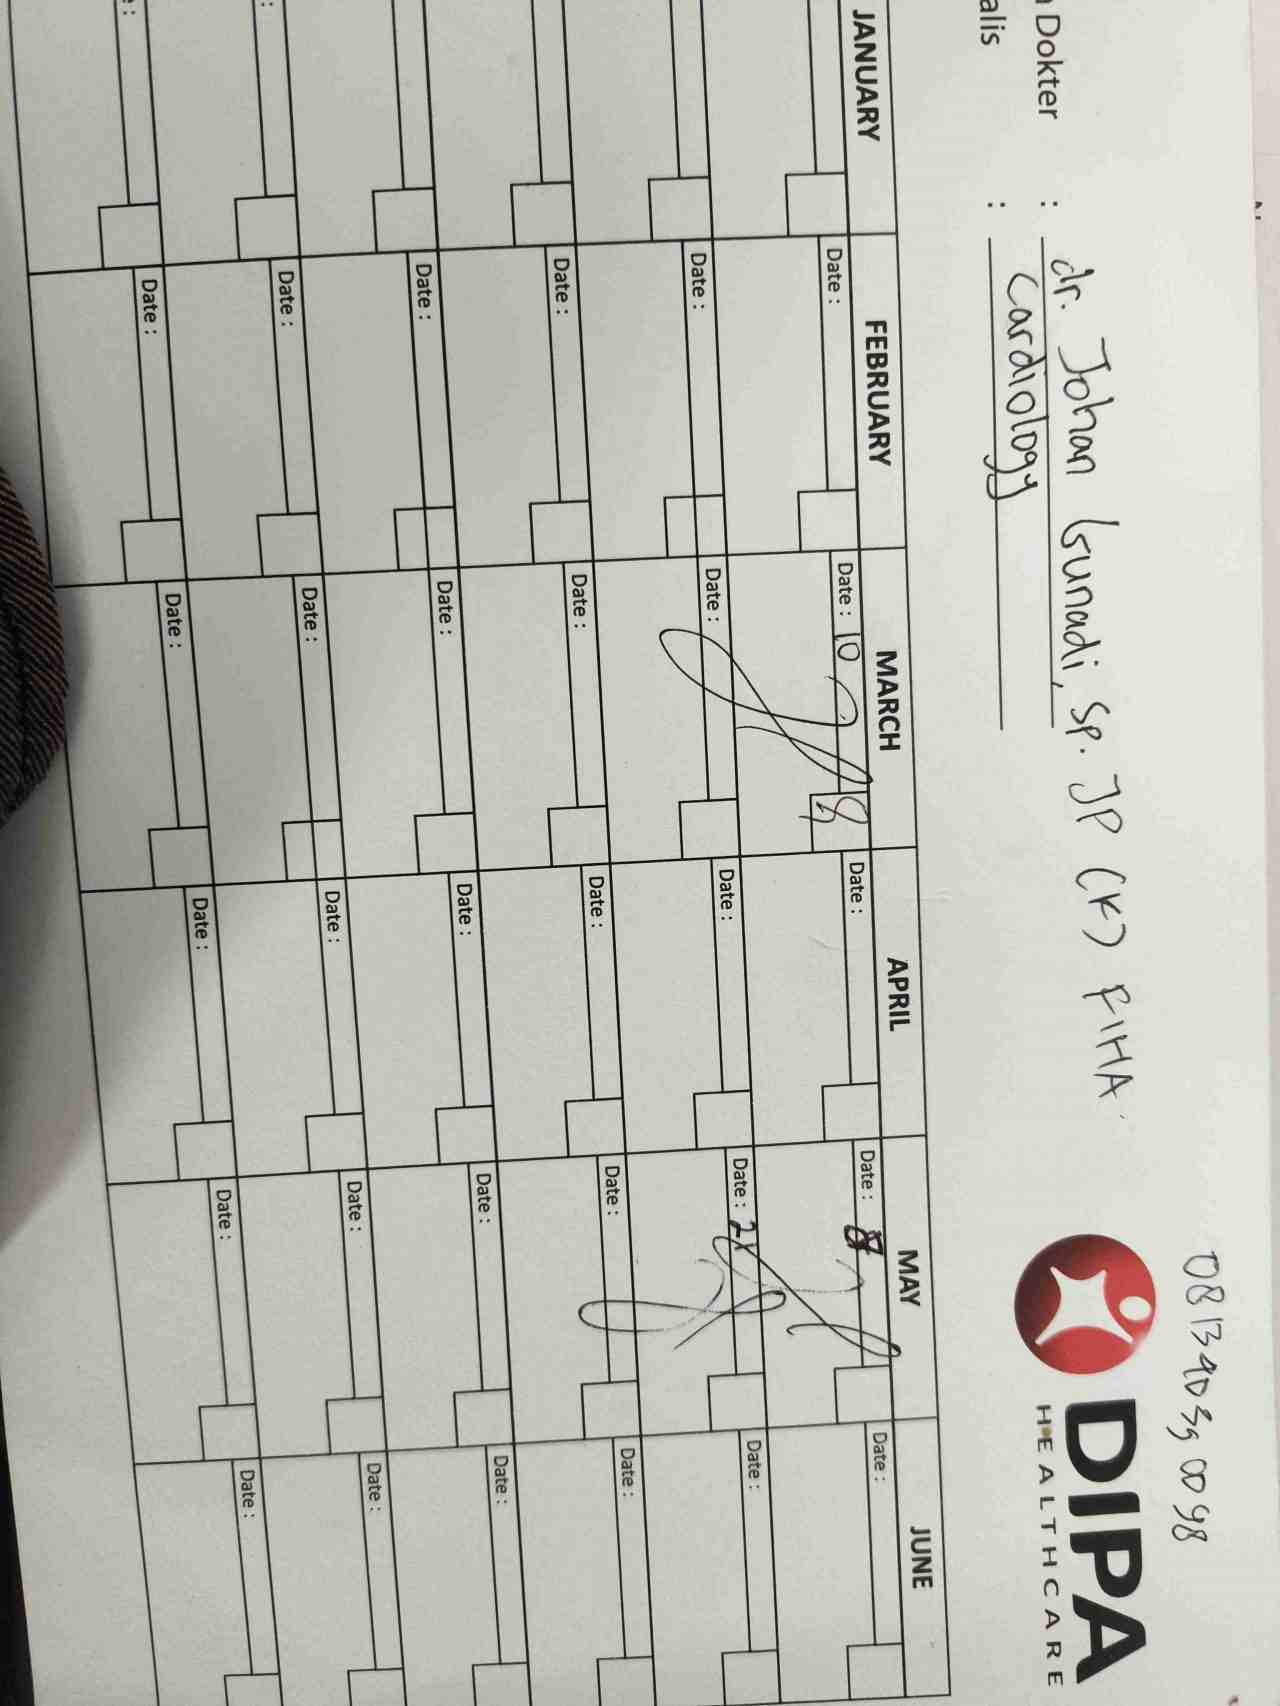 081340390098
DIPA
HEALTHCARE
Dokter : dr. Johan Gunadi, Sp. JP (K) FIHA
alis : Cardiology
JANUARY FEBRUARY MARCH APRIL MAY JUNE
Date : Date : 10 Date : Date : Date :
Date : Date : Date : Date : Date :
Date : Date : Date : Date : Date :
Date : Date : Date : Date : Date :
: Date : Date : Date : Date : Date :
: Date : Date : Date : Date : Date :